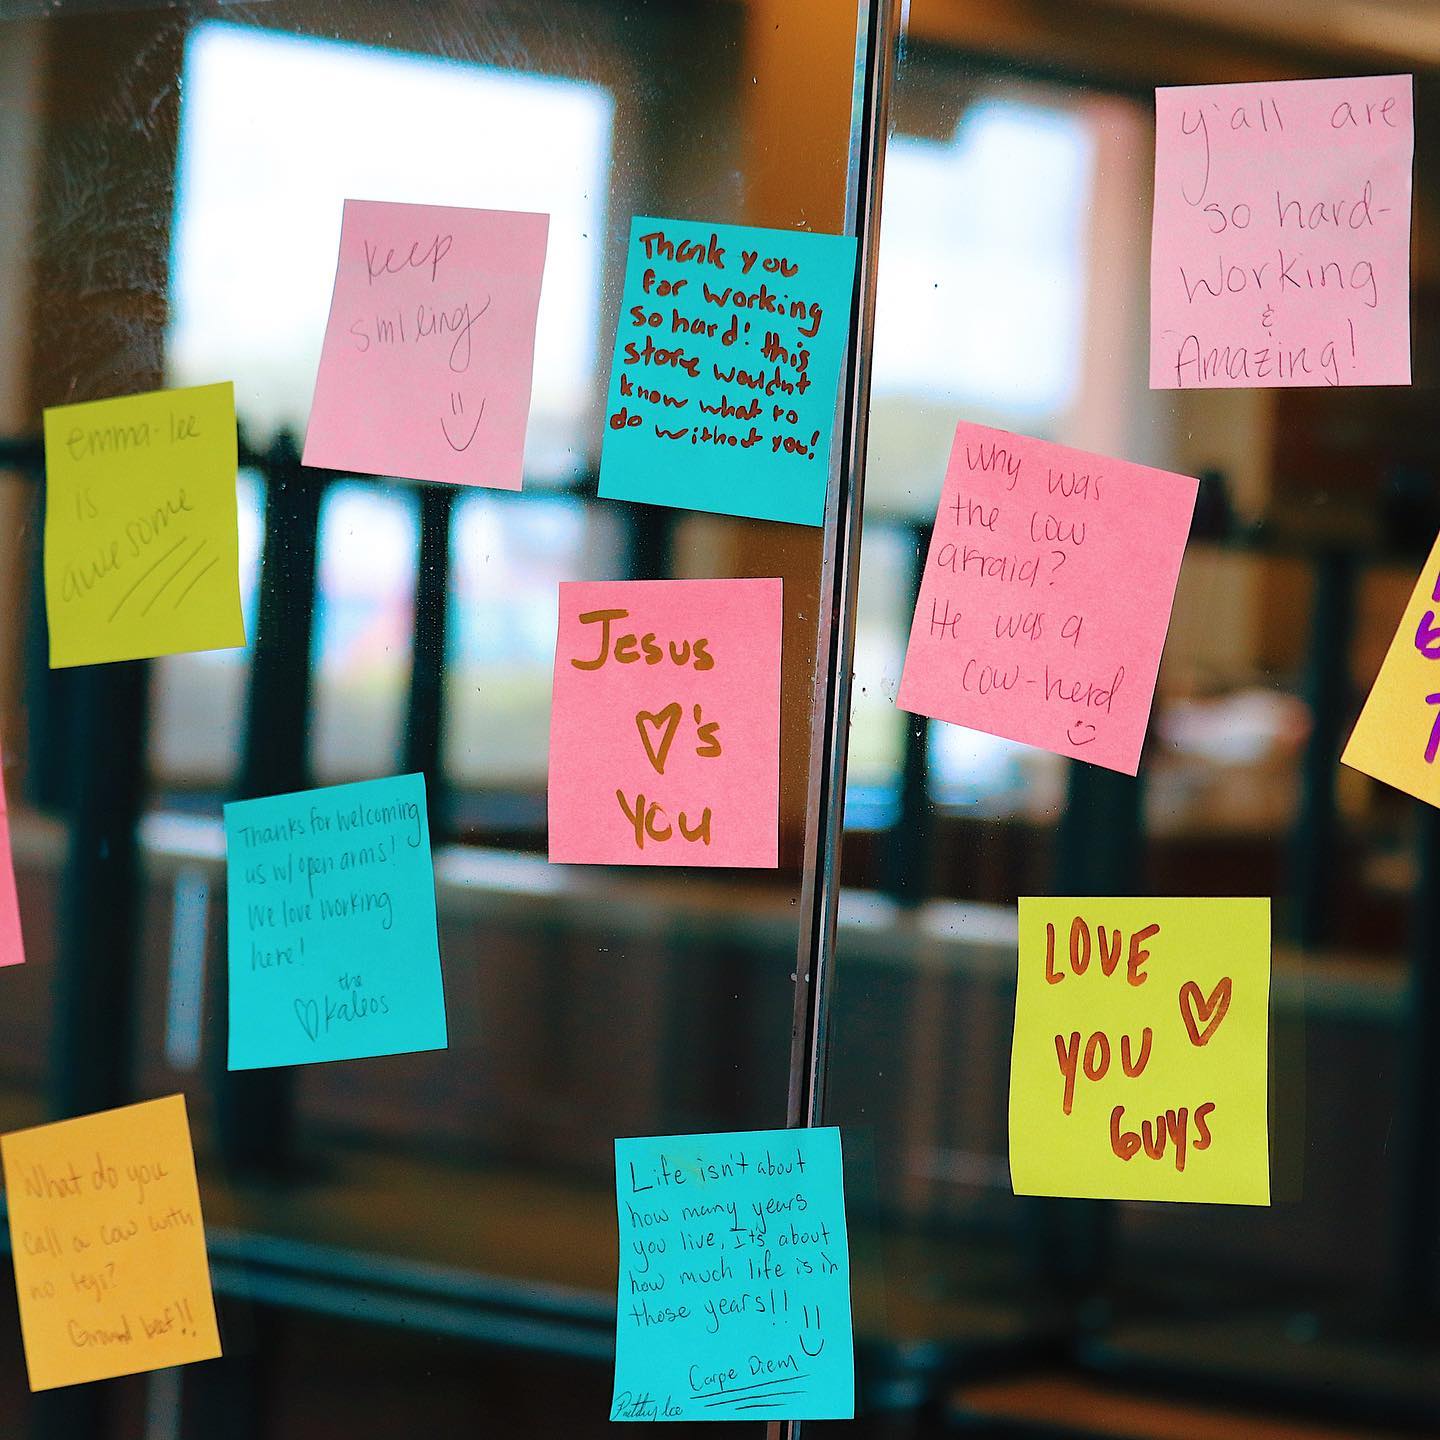 keep
smiling
Thank you
for working
so hard! this
store wouldn't
know what to
do without you!
y'all are
so hard-
working
&
Amazing!
emma-lee
is
awesome
Why was
the cow
afraid?
He was a
cow-herd
Jesus
♡'s
You
Thanks for welcoming
us w/ open arms!
We love working
here!
the
♡ Kaleos
LOVE
YOU ♡
GUYS
What do you
call a cow with
no legs?
Ground beef!!
Life isn't about
how many years
you live, It's about
how much life is in
those years!!
Carpe Diem